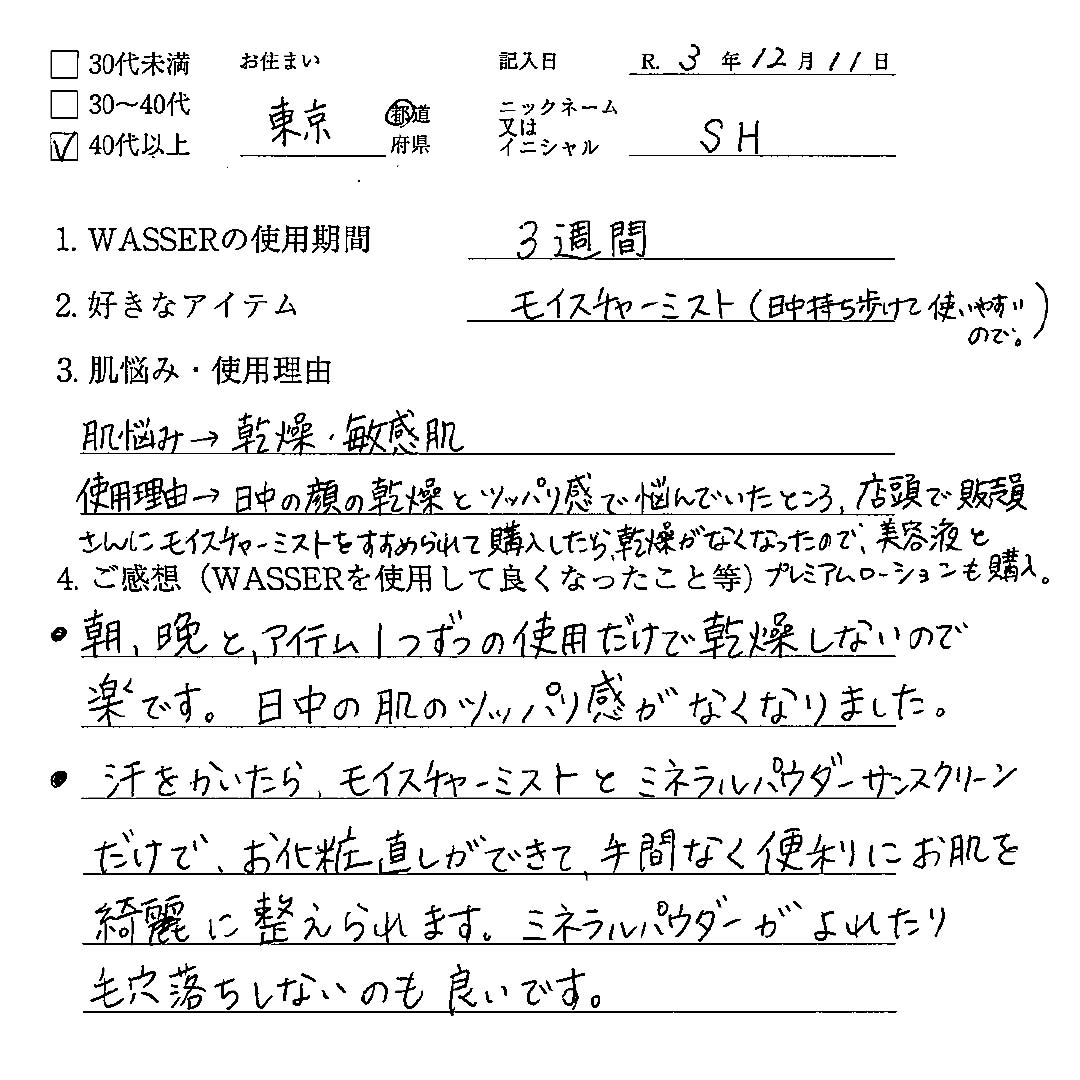 □ 30代未満
□ 30〜40代
☑ 40代以上
お住まい
東京 都道
府県
記入日 R. 3 年 12 月 11 日
ニックネーム
又は
イニシャル SH
1. WASSERの使用期間 3週間
2. 好きなアイテム モイスチャーミスト(日中持ち歩けて使いやすい
ので。)
3. 肌悩み・使用理由
肌悩み→乾燥・敏感肌
使用理由→日中の顔の乾燥とツッパリ感で悩んでいたところ、店頭で販売員
さんにモイスチャーミストをすすめられて購入したら、乾燥がなくなったので、美容液と
プレミアムローションも購入。
4. ご感想(WASSERを使用して良くなったこと等)
● 朝、晩と、アイテム1つずつの使用だけで乾燥しないので
楽です。日中の肌のツッパリ感がなくなりました。
● 汗をかいたら、モイスチャーミストとミネラルパウダーサンスクリーン
だけで、お化粧直しができて、手間なく便利にお肌を
綺麗に整えられます。ミネラルパウダーがよれたり
毛穴落ちしないのも良いです。